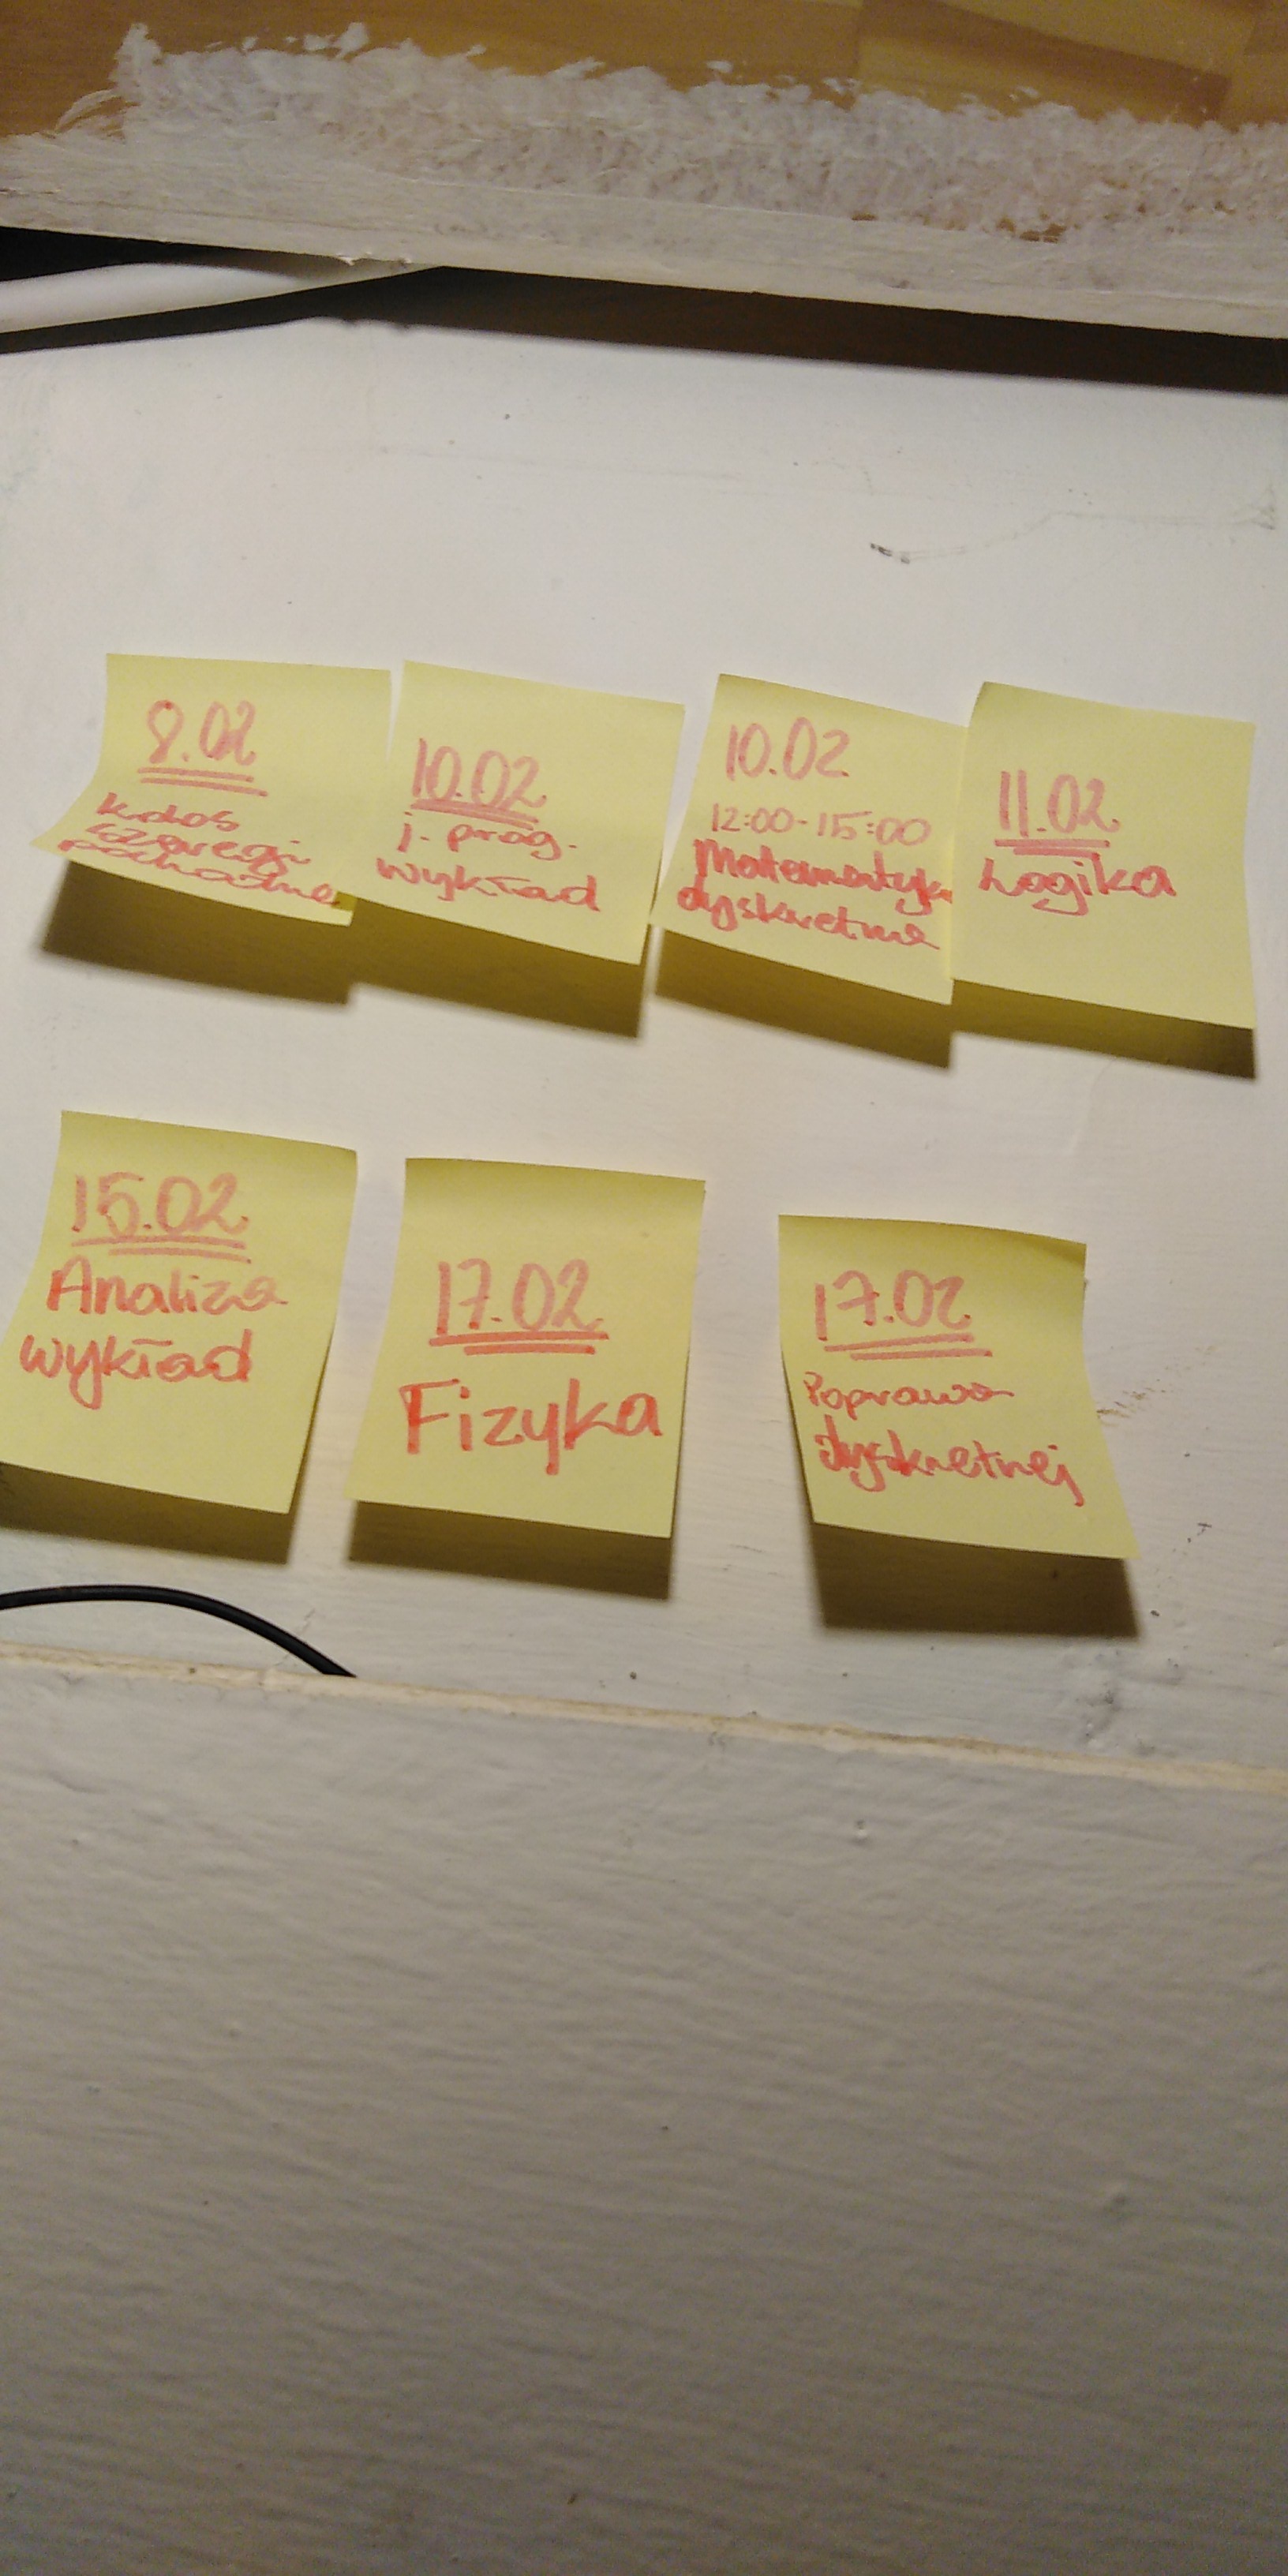 8.02
kolos
szeregi
pochodne
10.02
j. prog.
wykład
10.02
12:00-15:00
Matematyka
dyskretna
11.02
Logika
15.02
Analiza
wykład
17.02
Fizyka
17.02
Poprawa
dyskretnej